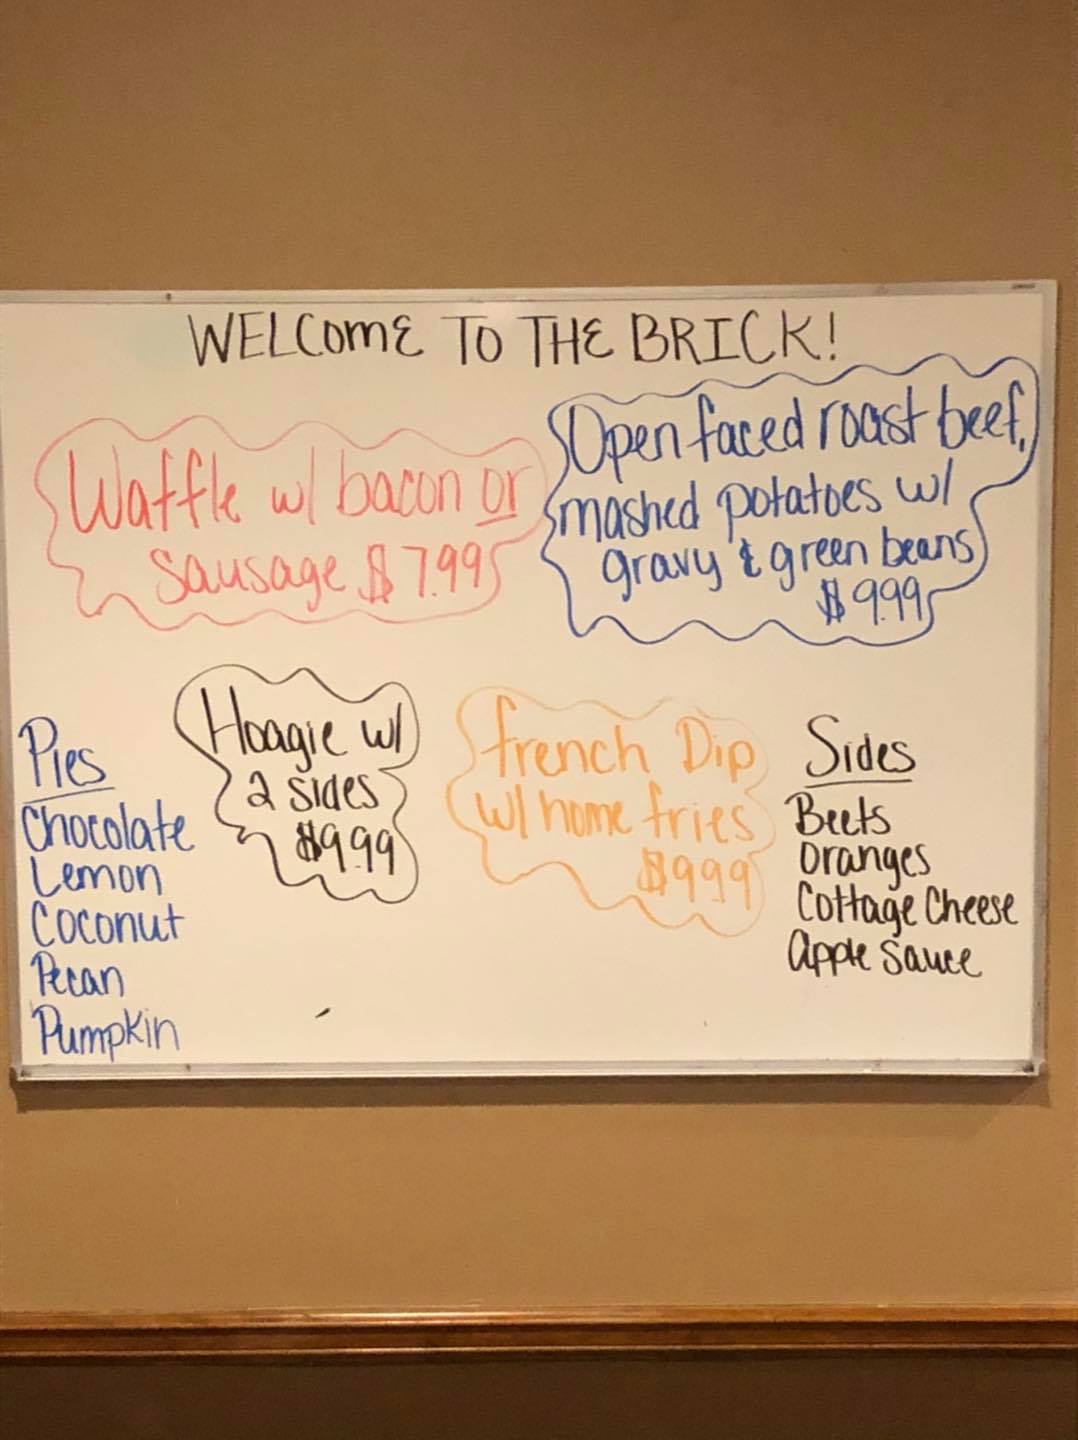 WELCOME TO THE BRICK!
Waffle w/ bacon or
sausage $7.99
Open faced roast beef,
mashed potatoes w/
gravy & green beans
$9.99
Pies
Chocolate
Lemon
Coconut
Pecan
Pumpkin
Hoagie w/
2 sides
$9.99
French Dip
w/ home fries
$9.99
Sides
Beets
Oranges
Cottage Cheese
Apple Sauce